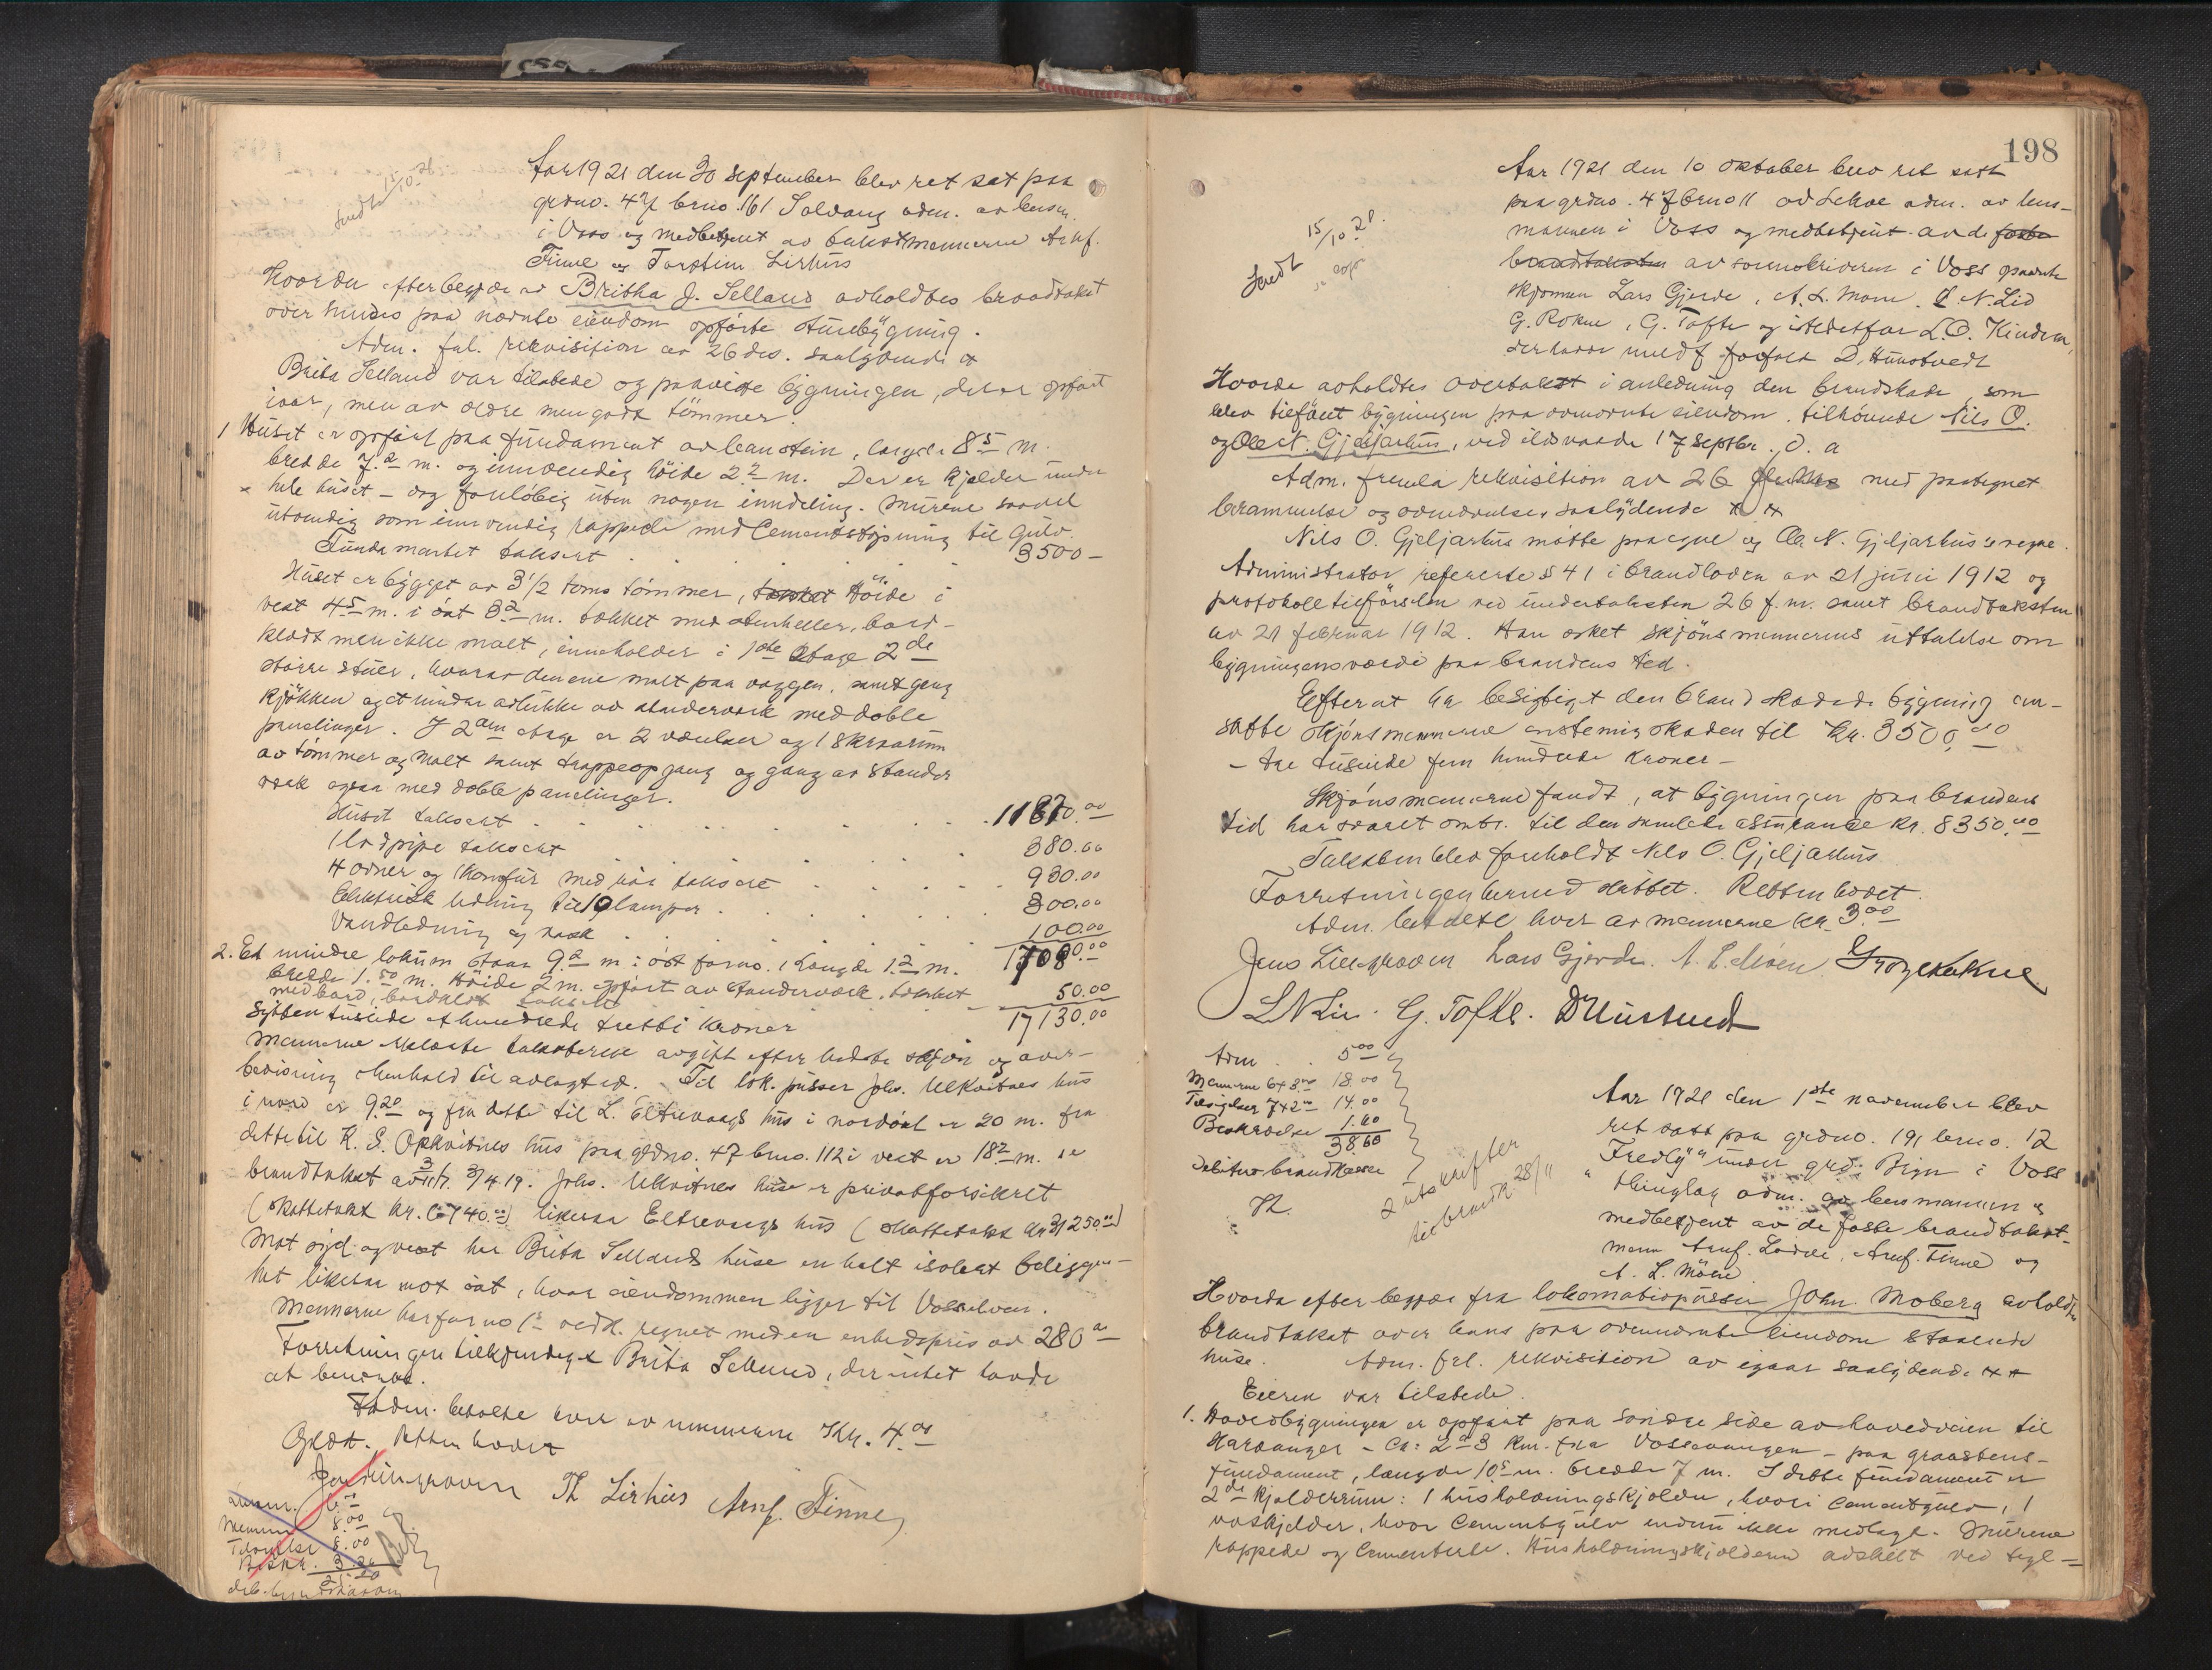 Sendt 15/10 21
Aar 1921 den 30 September blev ret sat paa
grdno. 47 brno. 161 Solvang adm. av lensm.
i Voss og medbetjent av takstmennerne Arnf.
Finne og Torstein Lirhus
Hvorda efter begjær av Britha J. Selland avholdtes brandtakst
over hendes paa nævnte eiendom opførte stuebygning.
Adm. frl. rekvisition av 26 ds. saalydende
Brita Selland var tilstede og paaviste bygningen, der er opført
iaar, men av ældre men godt tømmer.
1 Huset er opført paa fundament av graasten, længde 8⁵ m.
bredde 7.² m. og innvendig høide 2² m. Der er kjelder under
hele huset – dog foreløbig uten nogen inndeling. Murene saavel
utvendig som innvendig rappede med Cementstøpning til Gulv.
Fundamentet taksert 3500 –
Huset er bygget av 3 1/2 toms tømmer, Høide i
vest 4⁵ m. i øst 3² m. tækket med stenheller, bord-
klædt men ikke malt, inneholder i 1ste Etage 2de
større stuer, hvorav den ene malt paa væggen, samt gang
kjøkken og et mindre avlukke av standerværk med doble
panelinger. I 2den etage er 2 værelser og 1 skraarum
av tømmer og malt samt trappeopgang og gang av stander
værk ogsaa med doble panelinger.
Huset taksert 11870.00
1 brdpipe taksert 380.00
4 ovner og 1 Komfur med rør taksert 930.00
Elektrisk ledning til 19 lamper 300.00
Vandledning og vask 100.00
17080.00
2. Et mindre lokum staar 9.² m i øst for no. 1 Længde 1.² m.
bredde 1.⁵⁰ m. Høide 2 m. opført av standerværk, tækket
med bord, bordklædt taksert 50.00
Sytten tusinde et hundrede tretti Kroner 17130.00
Mennerne erklærte taksterne avgitt efter bedste skjøn og over-
bevisning i henhold til avlagt ed. Til lok. pusser Johs. Ulkvitnes hus
i nord er 9.20 og fra dette til L. Eltrevaags hus i nordøst er 20 m. fra
dette til K. S. Opkvitnes hus paa grdno. 47 brno. 112 i vest er 18² m. se
brandtakst av 3/4 19. Johs. Ulkvitnes huse er privatforsikret
(skattetakst kr. 6740.00) likesaa Eltrevaags hus (skattetakst kr 31250.00)
Mot syd og vest har Brita Sellands huse en helt isolert beliggen-
het likesaa mot øst, hvor eiendommen ligger til Vosselven.
Mennerne har for no 1 vedk. regnet med en enhedspris av 280
Forretningen tilkjendegit Brita Selland, der intet havde
at bemerke.
Adm. betalte hver av mennerne Kr. 4.00
Oplæst. Retten hævet
Jens Lillegraven Th Lirhus Arnf. Finne
Adm. 6.00
Mennene 8.00
Tilsigelse 8.00
Beskr. 3.20
198
Sendt 15/10 21.
Aar 1921 den 10 oktober blev ret satt
paa grdno. 47 brno 11 av Lekve adm. av lens-
mannen i Voss og medbetjent av de faste
brandtakstm av sorenskriveren i Voss opnævnte
skjønsmen Lars Gjerde, A. L. Møen. L. N. Lid
G. Rokne, G. Tofte og istedetfor L. O. Kindem,
der havde meldt forfald D. Hustvedt
Hvorda avholdtes overtakst i anledning den brandskade som
blev tilføiet bygningen paa ovennævnte eiendom, tilhørende Nils O.
og Ole N. Gjeljarhus, ved ildsvaade 17 septbr. d. a
Adm. fremla rekvisition av 26 med paategnet
berammelse og opnævnelse saalydende
Nils O. Gjeljarhus møtte paa egne og Ole N. Gjeljarhus's vegne.
Administrator refererte § 41 i brandloven av 21 juni 1912 og
protokolltilførselen ved undertaksten 26 f. m. samt brandtaksten
av 21 februar 1912. Han æsket skjønsmennerns uttalelse om
bygningens værdi paa brandens tid.
Efter at ha besigtiget den brandskadede bygning an-
satte skjønsmennerne enstemig skaden til kr. 3500,00
– tre tusinde fem hundrede kroner –
Skjønsmennerne fandt, at bygningen paa brandens
tid har svaret omtr. til den samlede assurance kr. 8350.00
Taksten blev foreholdt Nils O. Gjeljarhus
Forretningen hermed sluttet. Retten hævet.
Adm. betalte hver av mennerne kr. 3.00
Jens Lillegraven Lars Gjerde. A. L. Møen George Rokne
L N Lid. G. Tofte. D Hustvedt
Adm 5.00
Mennerne 6x3.00 18.00
Tilsigelser 7x2.00 14.00
Beskrivelse 1.60
38.60
Debiteres brandkassen
2 utskrifter
til brandk. 28/11
Aar 1921 den 1ste november blev
ret satt paa grdno. 191 brno. 12
"Fredly" under grd. Bign i Voss
thinglag adm. av lensmannen og
medbetjent av de faste brandtakst-
menn Arnf. Lødve, Arnf. Finne og
A. L. Møen
Hvorda efter begjær fra lokomotivpusser John. Moberg avholdtes
brandtakst over hans paa ovennævnte eiendom staaende
huse. Adm. frl. rekvisition av igaar saalydende
Eieren var tilstede.
1. Hovedbygningen er opført paa søndre side av hovedveien til
Hardanger – ca: 2 à 3 km. fra Vossevangen – paa graastens-
fundament, længde 10⁵ m. bredde 7 m. I dette fundament er
2de kjelderrum: 1 husholdningskjelder, hvori cementgulv, 1
vaskjelder, hvor Cementgulv endnu ikke medlagt. Murene
rappede og Cementerte. Husholdningskjelderen adskilt ved tegl-